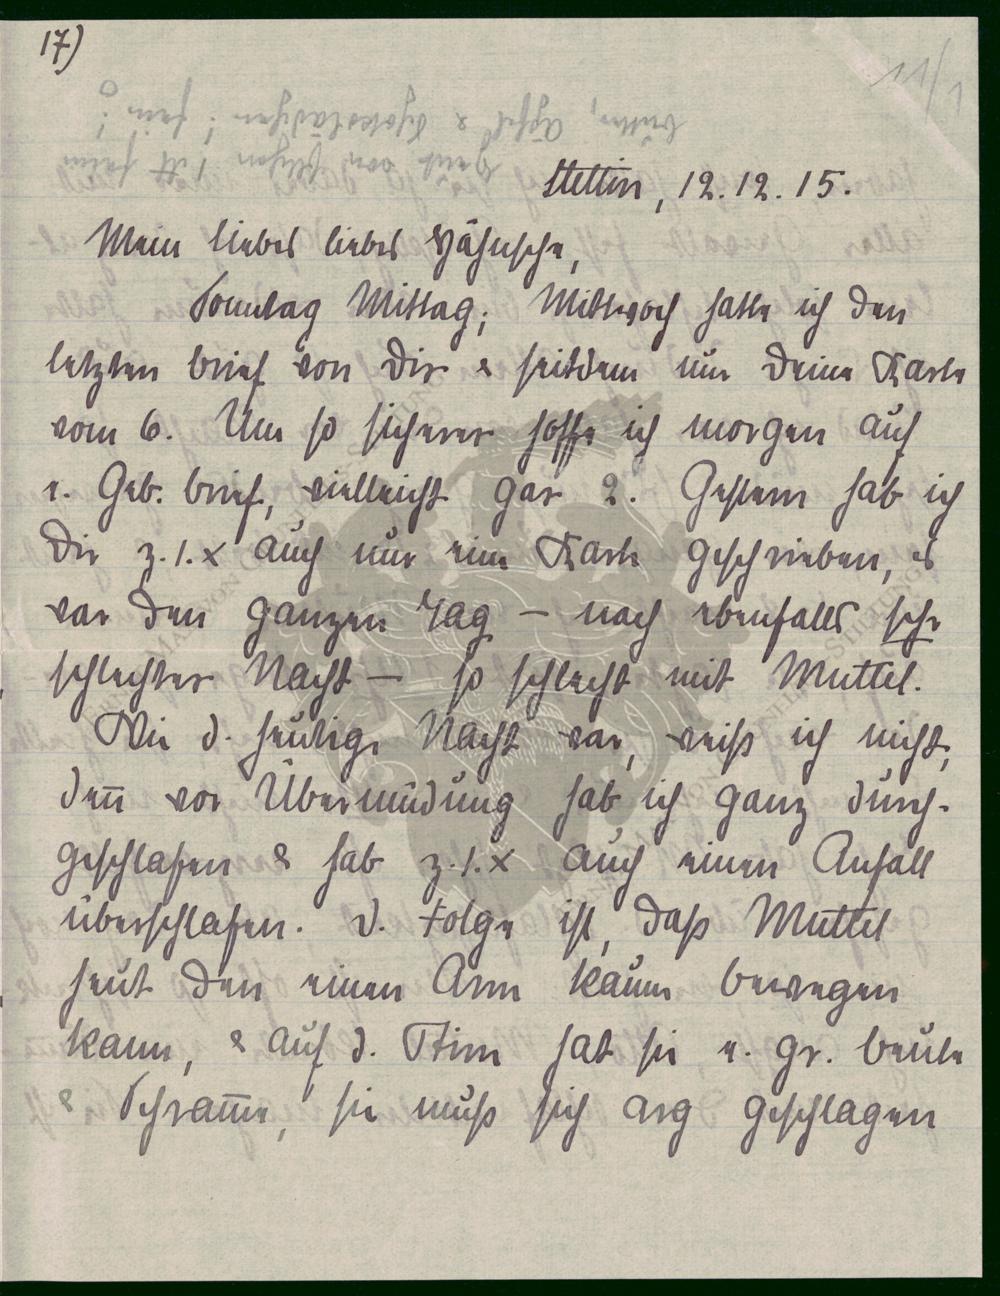 17)
11/1
Butter, Äpfel & Schokolädchen! fein!
Stettin, 12.12.15.
Mein liebes liebes Hähnsche,
Sonntag Mittag; Mittwoch hatte ich den
letzten Brief von Dir & seitdem nur Deine Karte
vom 6. Um so sicherer hoffe ich morgen auf
e. Geb. brief, vielleicht gar 2. Gestern hab ich
Dir z. 1. x auch nur eine Karte geschrieben, es
war den ganzen Tag – nach ebenfalls sehr
schlechter Nacht – so schlecht mit Muttel.
Wie d. heutige Nacht war, weiß ich nicht,
deñ vor Übermüdung hab ich ganz durch-
geschlafen & hab z. 1. x auch einen Anfall
überschlafen. D. Folge ist, daß Muttel
heut den einen Arm kaum bewegen
kann, & auf d. Stirn hat sie e. gr. Beule
& Schram̄e, sie muß sich arg geschlagen